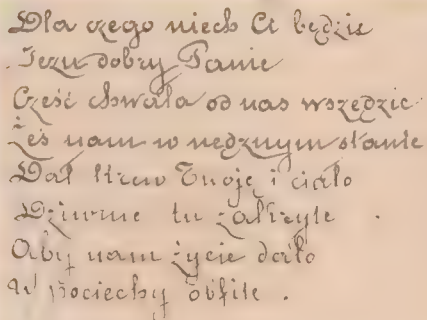 Dla czego niech Ci będzie
Jezu dobry Panie
Cześć chwała od nas wszędzie
Żeś nam w nędznym stanie
Dał Krew Twoję i ciało
Dziwnie tu zakryte
Aby nam życie dało
W pociechy obfite .